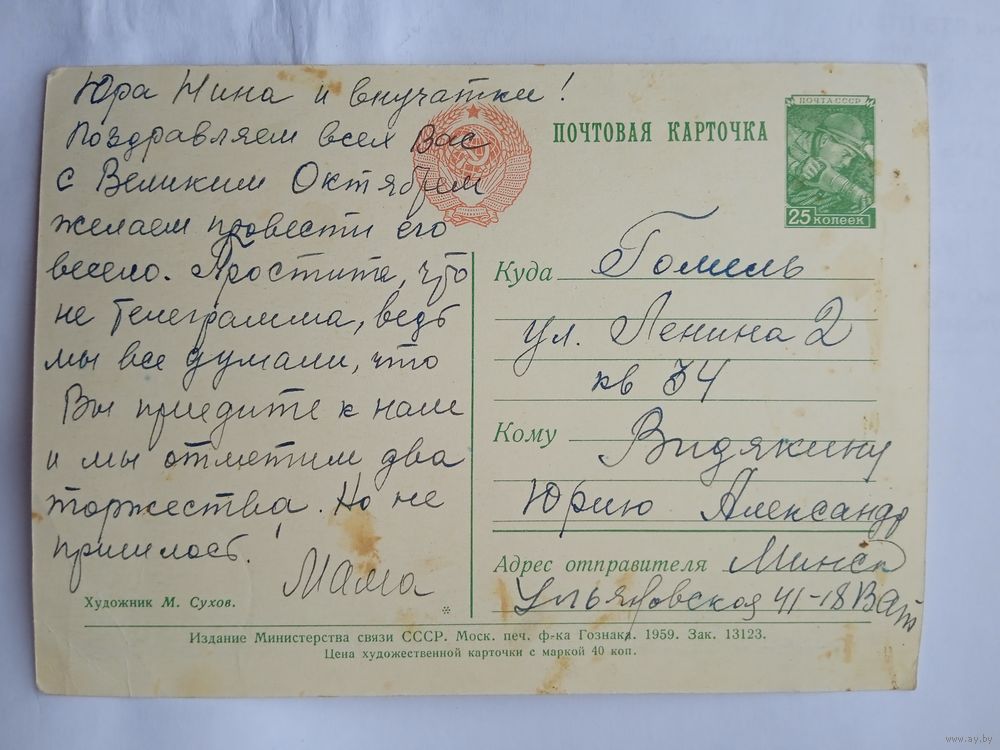 Юра Нина и внучатки!
Поздравляем всех Вас
с Великим Октябрем
желаем провести его
весело. Простите, что
не телеграмма, ведь
мы все думали, что
Вы приедите к нам
и мы отметим два
торжества. Но не
пришлось.
Мама
Художник М. Сухов.
ПОЧТОВАЯ КАРТОЧКА
ПОЧТА СССР
25 КОПЕЕК
Куда Гомель
ул. Ленина 2
кв 34
Кому Видякину
Юрию Александр
Адрес отправителя Минск
Ульяновская 41-18
Издание Министерства связи СССР. Моск. печ. ф-ка Гознака. 1959. Зак. 13123.
Цена художественной карточки с маркой 40 коп.
www.ay.by